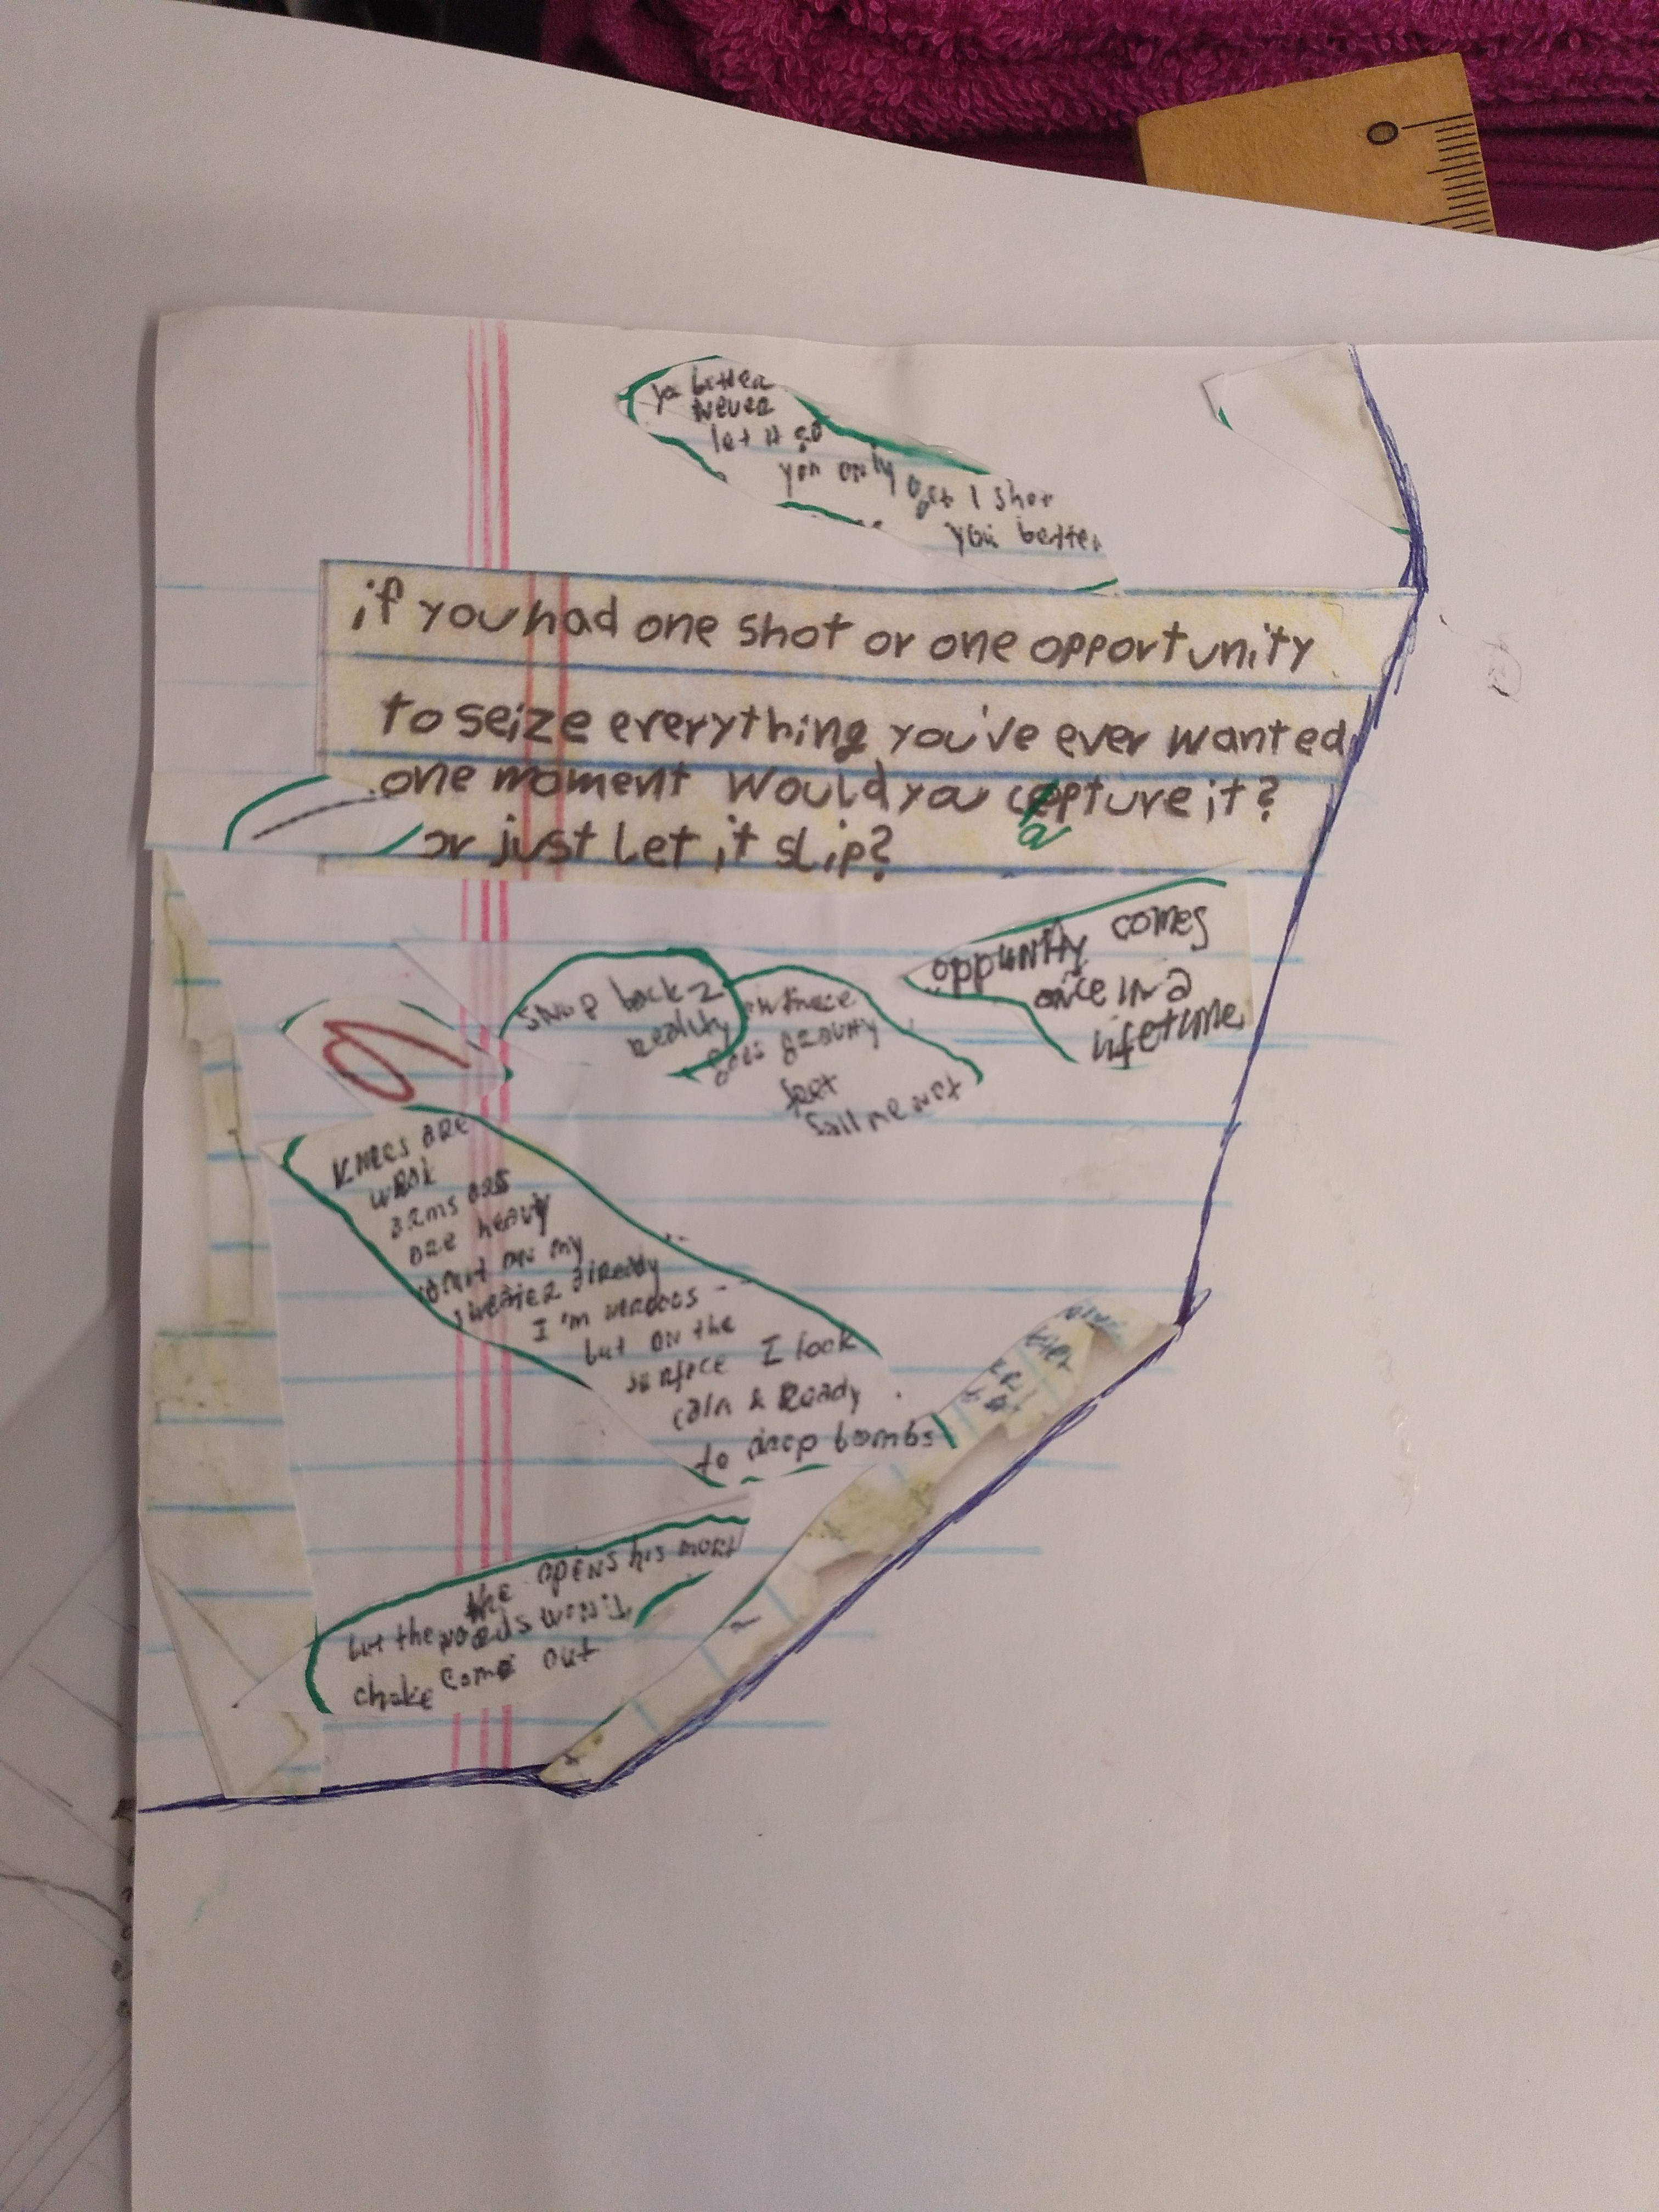 0
ya better
never
let it go
you only get 1 shot
you better
if you had one shot or one opportunity
to seize everything you've ever wanted
one moment would you capture it?
a
or just let it slip?
oppunity comes
once in a
lifetime
snap back 2
reality
goes gravity
feet
fail me not
knees are
weak
arms
are heavy
my
sweater already
I'm nervous
but on the
surface I look
calm & Ready
to drop bombs
he opens his
but the words won't
choke come out